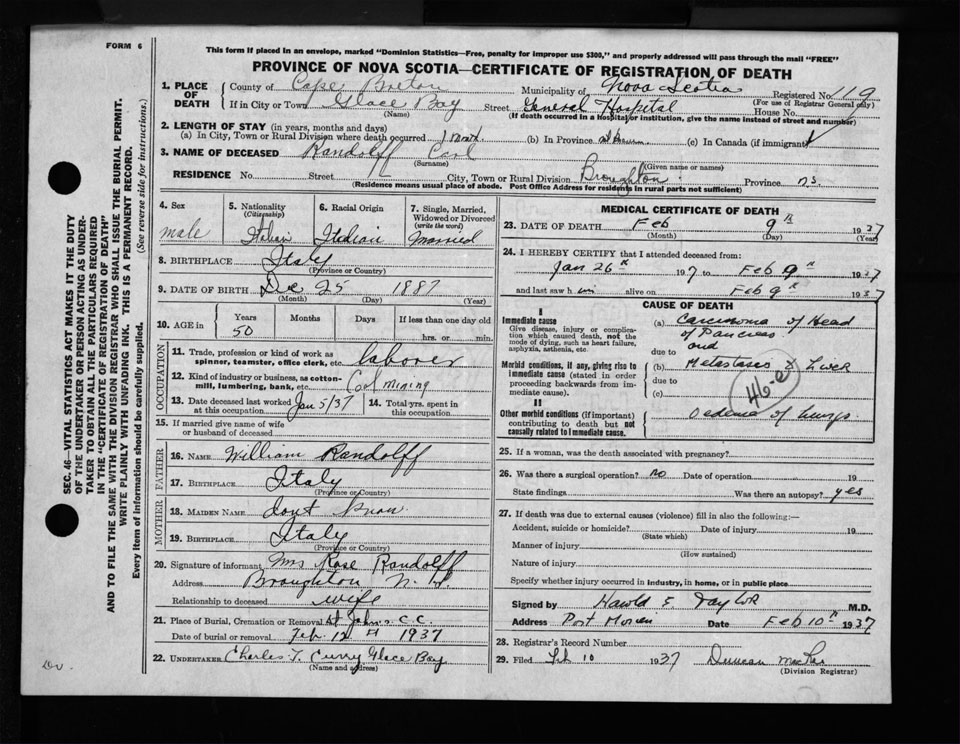 FORM 6
This form if placed in an envelope, marked "Dominion Statistics—Free, penalty for improper use $300," and properly addressed will pass through the mail "FREE"
PROVINCE OF NOVA SCOTIA—CERTIFICATE OF REGISTRATION OF DEATH
1. PLACE OF DEATH County of Cape Breton Municipality of Nova Scotia Registered No. 119
(For use of Registrar General only)
If in City or Town Glace Bay Street General Hospital House No.
(Name) (If death occurred in a hospital or institution, give the name instead of street and number)
2. LENGTH OF STAY (in years, months and days)
(a) In City, Town or Rural Division where death occurred (b) In Province (c) In Canada (if immigrant)
3. NAME OF DECEASED Randolff Carl
(Surname) (Given name or names)
RESIDENCE No. Street City, Town or Rural Division Broughton Province n.s.
(Residence means usual place of abode. Post Office Address for residents in rural parts not sufficient)
4. Sex male
5. Nationality (Citizenship) Italian
6. Racial Origin Italian
7. Single, Married, Widowed or Divorced (write the word) Married
8. BIRTHPLACE Italy
(Province or Country)
9. DATE OF BIRTH Dec 25 1887
(Month) (Day) (Year)
10. AGE in Years 50 Months Days If less than one day old
hrs. or min.
OCCUPATION
11. Trade, profession or kind of work as spinner, teamster, office clerk, etc. laborer
12. Kind of industry or business, as cotton-mill, lumbering, bank, etc. Coal mining
13. Date deceased last worked at this occupation Jan 5/37
14. Total yrs. spent in this occupation.
15. If married give name of wife or husband of deceased
FATHER
16. NAME William Randolff
17. BIRTHPLACE Italy
(Province or Country)
MOTHER
18. MAIDEN NAME dont know
19. BIRTHPLACE Italy
(Province or Country)
20. Signature of informant Mrs Rose Randolff
Address Broughton N.S.
Relationship to deceased wife
21. Place of Burial, Cremation or Removal St John's C.C.
Date of burial or removal Feb. 12 1937
22. UNDERTAKER Charles T. Curry Glace Bay
(Name and address)
MEDICAL CERTIFICATE OF DEATH
23. DATE OF DEATH Feb 9th 1937
(Month) (Day) (Year)
24. I HEREBY CERTIFY that I attended deceased from:
Jan 26th 1937 to Feb 9th 1937
and last saw him alive on Feb 9th 1937
CAUSE OF DEATH
I
Immediate cause
Give disease, injury or complication which caused death, not the mode of dying, such as heart failure, asphyxia, asthenia, etc.
(a) Carcinoma of Head of Pancreas and
due to
Morbid conditions, if any, giving rise to immediate cause (stated in order proceeding backwards from immediate cause).
(b) Metastases to Liver
due to
(c)
46-e
II
Other morbid conditions (if important) contributing to death but not causally related to immediate cause.
Oedema of lungs
25. If a woman, was the death associated with pregnancy?
26. Was there a surgical operation? no Date of operation 19
State findings Was there an autopsy? yes
27. If death was due to external causes (violence) fill in also the following:—
Accident, suicide or homicide? Date of injury 19
(State which)
Manner of injury
(How sustained)
Nature of injury
Specify whether injury occurred in industry, in home, or in public place
Signed by Harold E Taylor M.D.
Address Port Morien Date Feb 10th 1937
28. Registrar's Record Number
29. Filed Feb 10 1937 Duncan MacRae
(Division Registrar)
SEC. 46—VITAL STATISTICS ACT MAKES IT THE DUTY
OF THE UNDERTAKER OR PERSON ACTING AS UNDER-
TAKER TO OBTAIN ALL THE PARTICULARS REQUIRED
IN THE "CERTIFICATE OF REGISTRATION OF DEATH"
AND TO FILE THE SAME WITH THE DIVISION REGISTRAR WHO SHALL ISSUE THE BURIAL PERMIT.
WRITE PLAINLY WITH UNFADING INK. THIS IS A PERMANENT RECORD.
Every item of information should be carefully supplied. (See reverse side for instructions.)